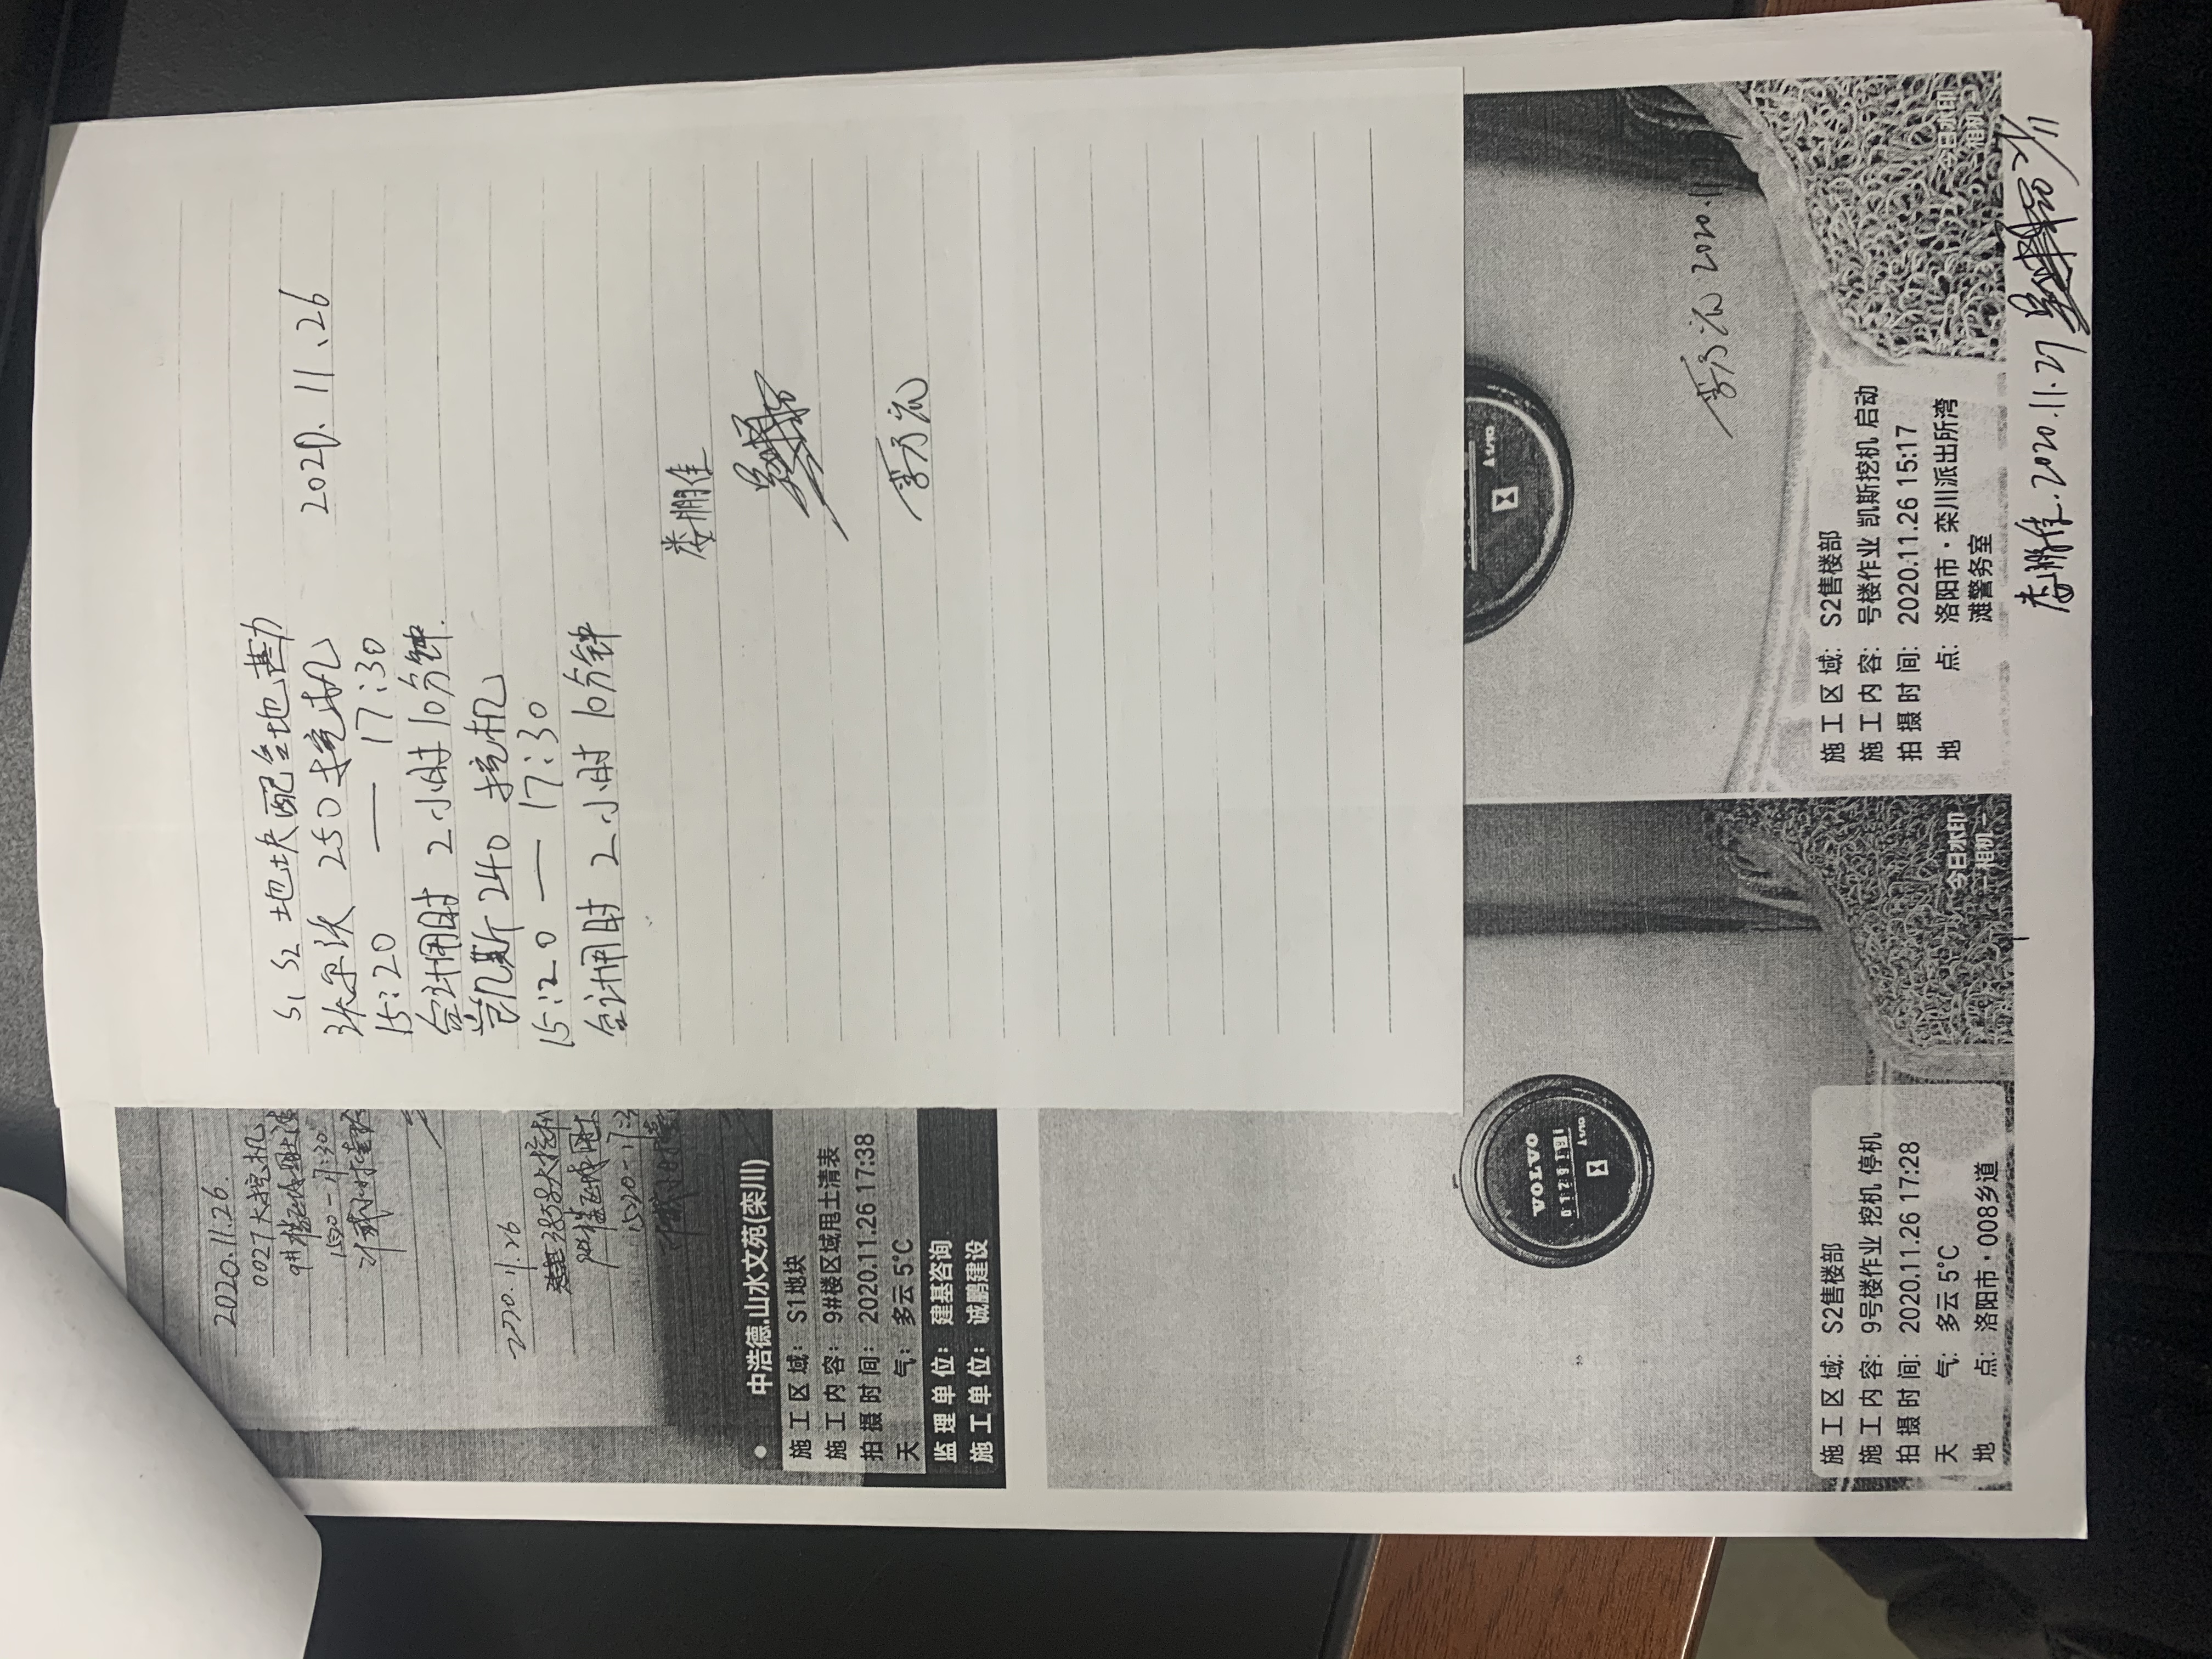 S1 S2 地块配合地勘
2020.11.26
沃尔沃 250 挖机
15:20 — 17:30
合计用时 2小时10分钟.
凯斯240 挖机
15:20 — 17:30
合计用时 2小时10分钟
娄鹏佳
2020.11.26.
0027大挖机
2020.11.26
中浩德.山水文苑(栾川)
施工区域: S1地块
施工内容: 9#楼区域甩土清表
拍摄时间: 2020.11.26 17:38
天 气: 多云 5℃
监理单位: 建基咨询
施工单位: 诚鹏建设
VOLVO
施工区域: S2售楼部
施工内容: 9号楼作业 挖机 停机
拍摄时间: 2020.11.26 17:28
天 气: 多云 5℃
地 点: 洛阳市·008乡道
今日水印
相机
2020.11
施工区域: S2售楼部
施工内容: 号楼作业 凯斯挖机 启动
拍摄时间: 2020.11.26 15:17
地 点: 洛阳市·栾川派出所湾
滩警务室
今日水印
相机
娄鹏佳.2020.11.27